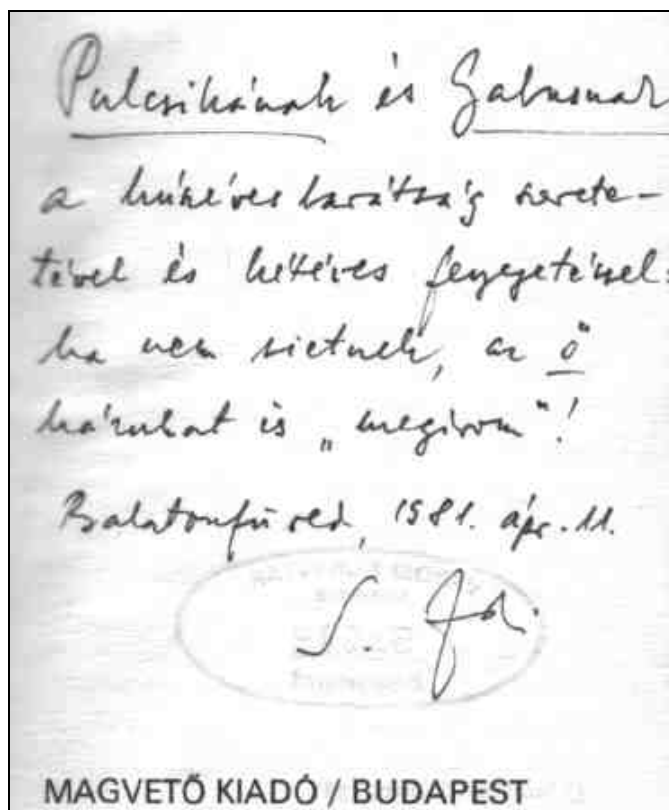 Pulcsikának és Gabusnak
a húszéves barátság szerete-
tével és kétéves fenyegetéssel:
ha nem sietnek, az "ő"
házukat is „megírom"!
Balatonfüred, 1981. ápr. 11.
S.
MAGVETŐ KIADÓ / BUDAPEST